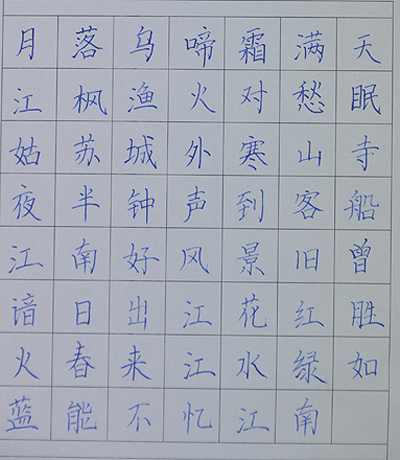 月落乌啼霜满天
江枫渔火对愁眠
姑苏城外寒山寺
夜半钟声到客船
江南好风景旧曾
谙日出江花红胜
火春来江水绿如
蓝能不忆江南